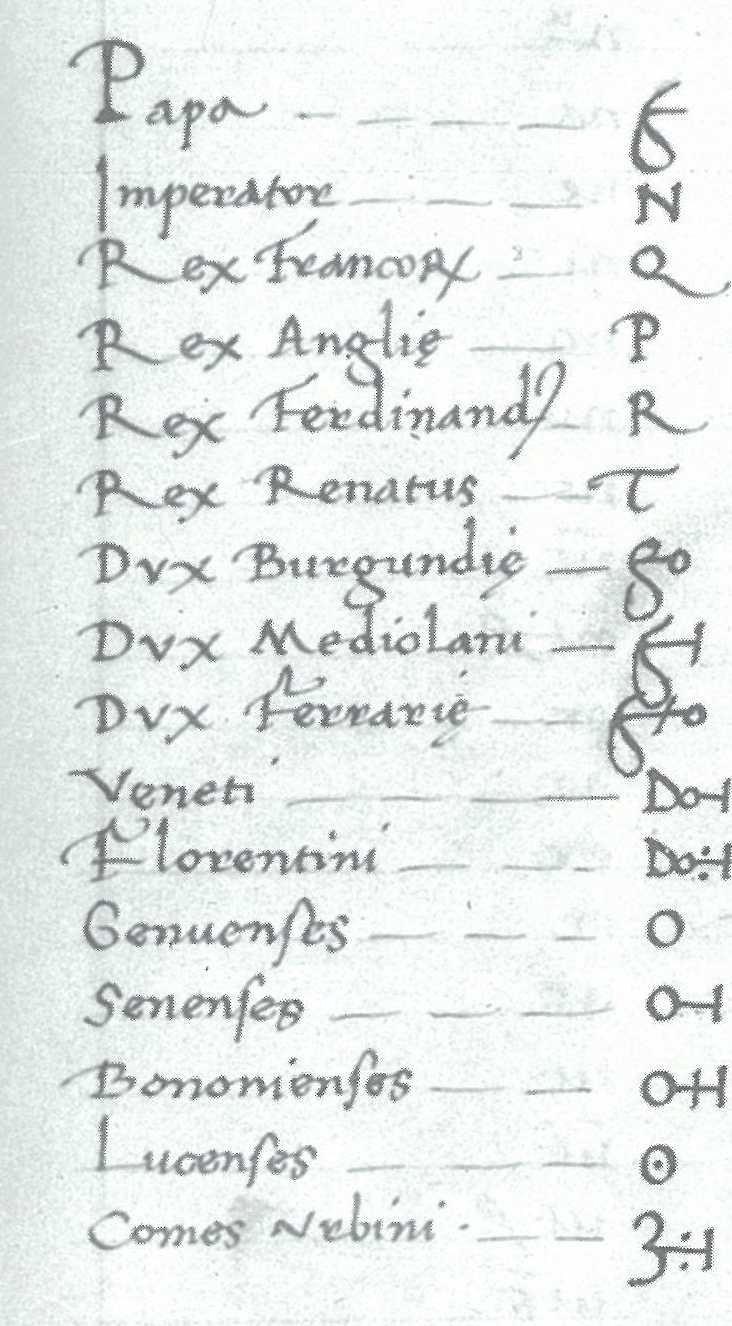 Papa
Imperator N
Rex Francoꝝ Q
Rex Anglię P
Rex Ferdinand R
Rex Renatus T
Dvx Burgundię
Dvx Mediolani
Dvx Ferrarię
Veneti
Florentini
Genuenſes O
Senenſes
Bononienſes
Lucenſes ʘ
Comes Vrbini